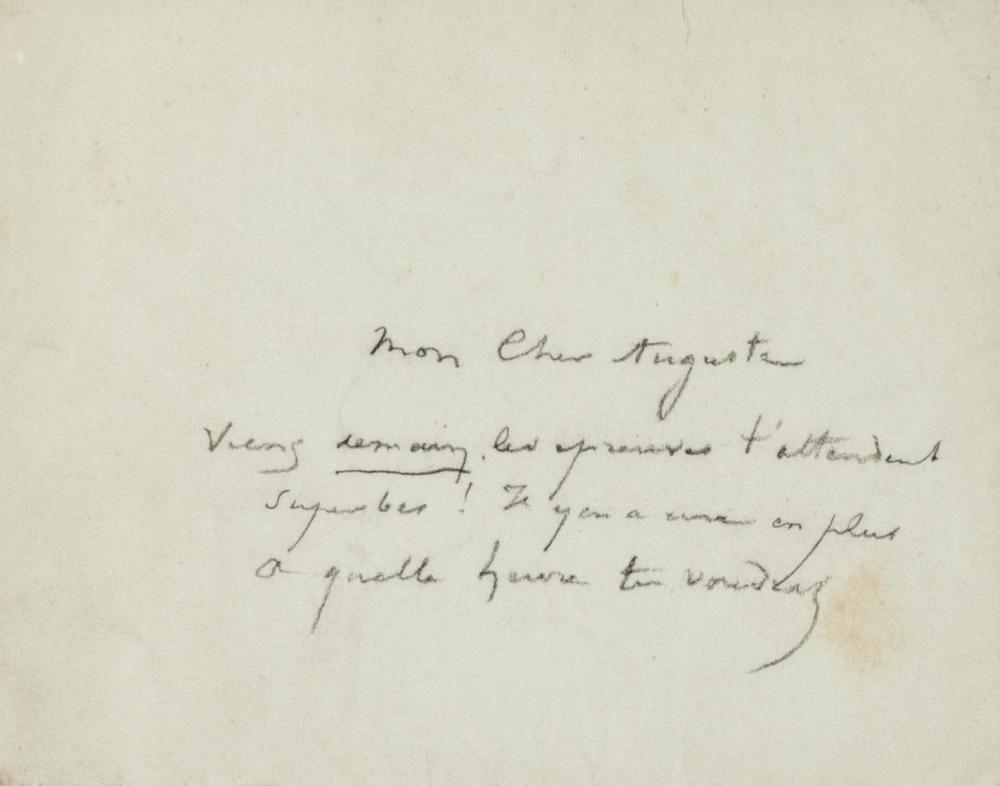 Mon Cher Auguste
Viens demain, les epreuves t'attendent
superbes ! Il y en a une en plus
a quelle heure tu voudras